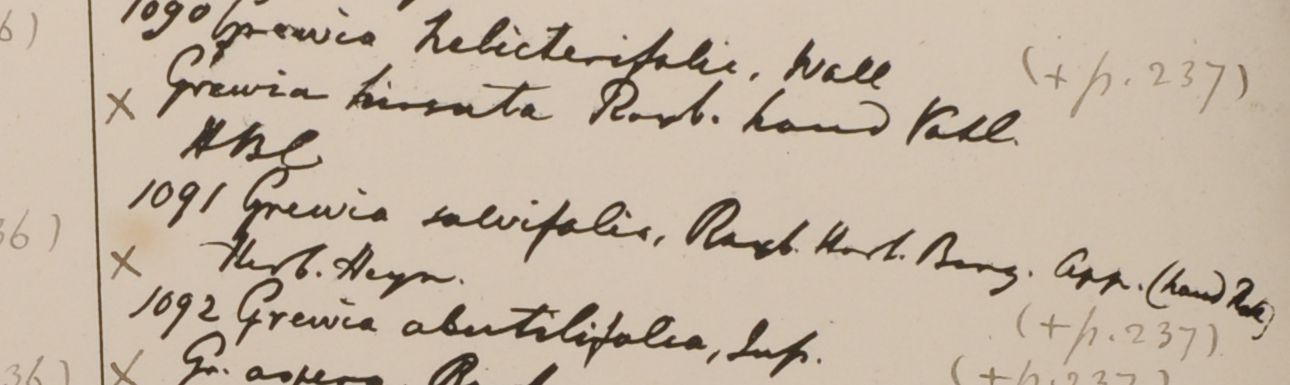 6)
1090 Grewia helicterifolia, Wall
(+ p. 237)
× Grewia hirsuta Roxb. haud Vahl.
HBC
1091 Grewia salvifolia, Roxb. Hort. Beng. App. (haud Roth)
36)
× Herb. Heyn.
(+ p. 237)
1092 Grewia abutilifolia, Jup.
36)
× Gr. aspera,
(+ p. 237)